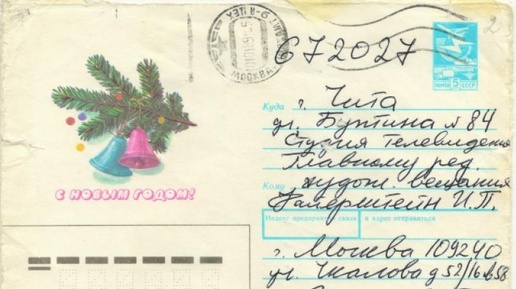 672027
МОСКВА
ПОЧТА 5 СССР
Куда
г. Чита
ул. Бутина № 84
Студия телевидения
Главному ред.
Кому
худож. вещания
Фалерштейн И.П.
С НОВЫМ ГОДОМ!
Индекс предприятия связи и адрес отправителя
г. Москва 109240
ул. Чкалова д 52/16 кв 58